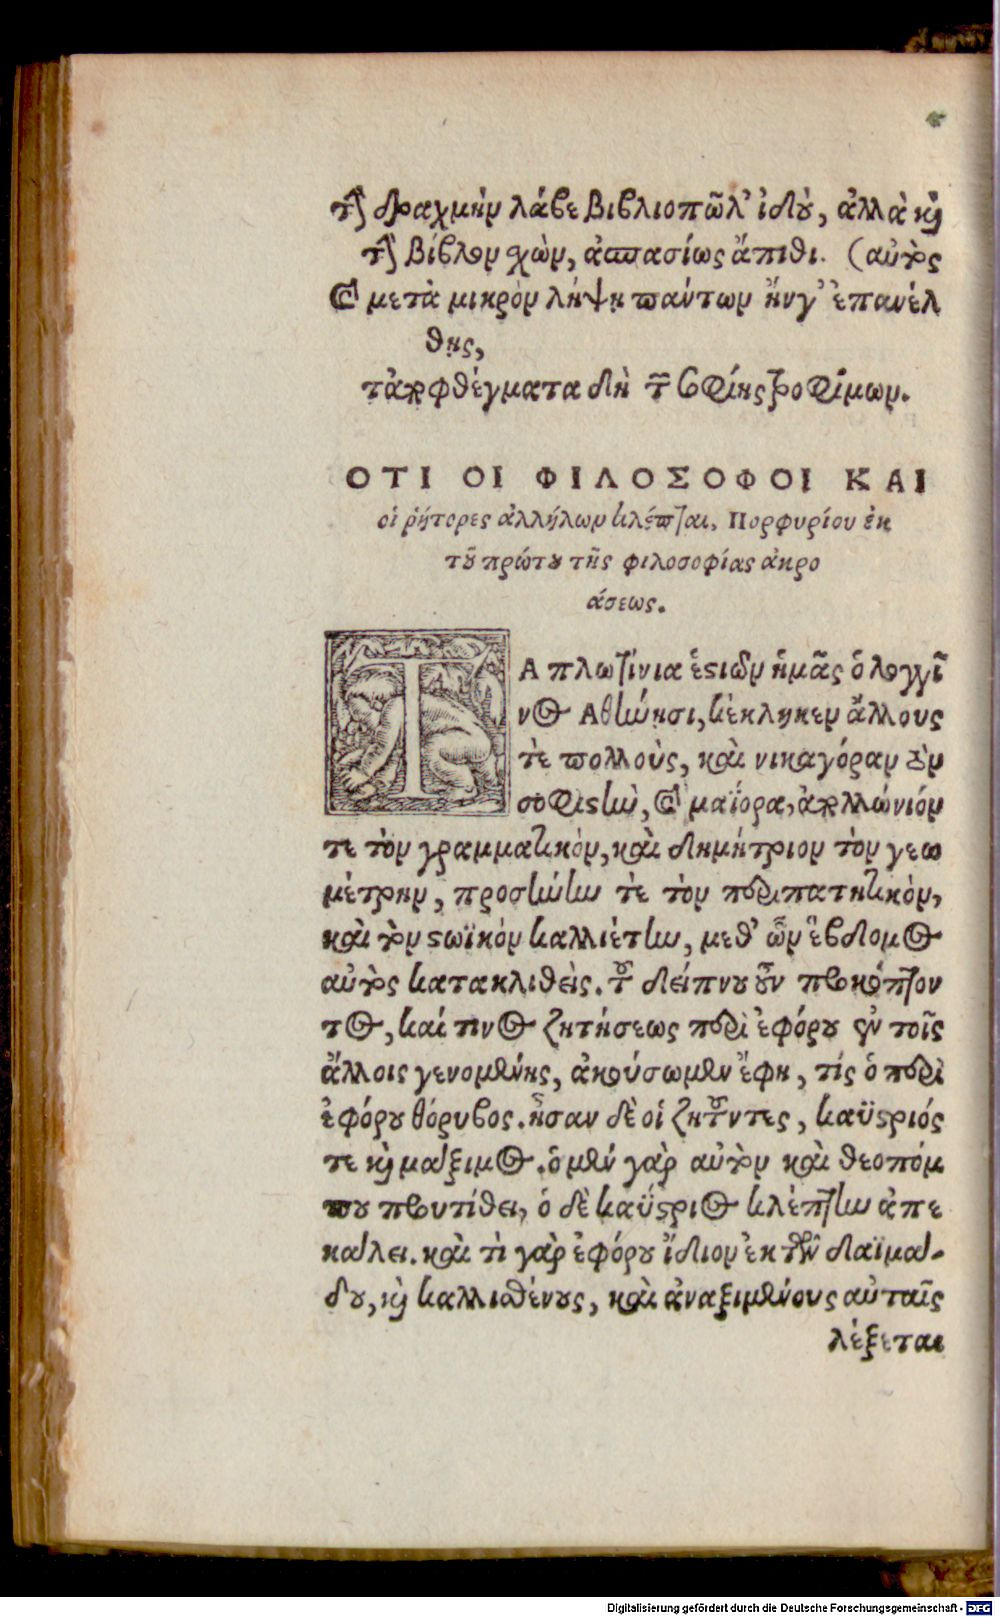 τὴν δραχμὴν λάβε βιβλιοπῶλ' ἰδοὺ, ἀλλὰ καὶ
τὴν βίβλον χὼν, ἀσπασίως ἄπιθι. (αὐτὸς
καὶ μετὰ μικρὸν λήψῃ πάντων ἤνγ' ἐπανέλ
θῃς,
τἀποφθέγματα δὴ τῶν σοφίης προφίμων.
ΟΤΙ ΟΙ ΦΙΛΟΣΟΦΟΙ ΚΑΙ
οἱ ῥήτορες ἀλλήλων κλέπται, Πορφυρίου ἐκ
τοῦ πρώτου τῆς φιλοσοφίας ἀκρο
άσεως.
ΤΑ πλωτίνια ἑστιῶν ἡμᾶς ὁ λογγῖ
νος Αθήνησι, κέκληκεν ἄλλους
τὲ πολλοὺς, καὶ νικαγόραν τὸν
σοφιστὴν, καὶ μαΐορα, ἀπολλώνιόν
τε τὸν γραμματικὸν, καὶ δημήτριον τὸν γεω
μέτρην, προσήνην τὲ τὸν περιπατητικὸν,
καὶ τὸν στωϊκὸν καλλιέτην, μεθ' ὧν ἕβδομος
αὐτὸς κατακλιθεὶς. τοῦ δείπνου οὖν προκόπτον
τος, καί τινος ζητήσεως περὶ ἐφόρου ἐν τοῖς
ἄλλοις γενομένης, ἀκούσωμεν ἔφη, τίς ὁ περὶ
ἐφόρου θόρυβος. ἦσαν δὲ οἱ ζητοῦντες, καΰστριός
τε καὶ μάξιμος. ὁ μὲν γὰρ αὐτὸν καὶ θεοπόμ
που προυτίθει, ὁ δὲ καΰστριος κλέπτην ἀπε
κάλει. καὶ τὶ γὰρ ἐφόρου ἴδιον ἐκ τῶν δαϊμά-
δου, καὶ καλλισθένους, καὶ ἀναξιμένους αὐταῖς
λέξεται
Digitalisierung gefördert durch die Deutsche Forschungsgemeinschaft - DFG